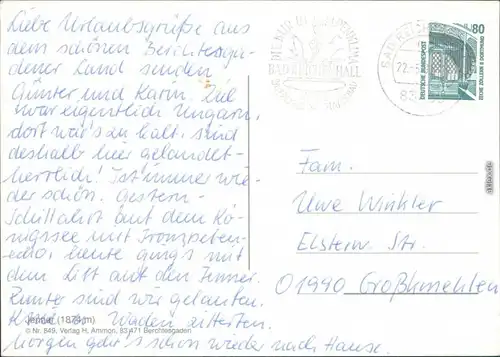 Liebe Urlaubsgrüße aus
dem schönen Berchtesga-
dener Land senden
Günter und Karin. Ziel
war eigentlich Ungarn,
dort war's zu kalt, sind
deshalb hier gelandet-
herrlich! Ist immer wie-
der schön. Gestern
Schiffahrt auf dem Kö-
nigssee mit Trompeten-
echo, heute ging's mit
dem Lift auf den Jenner.
Runter sind wir gelaufen.
Waden zitterten.
Morgen geht's schon wieder nach Hause.
Jenner (1874 m)
© Nr. 849, Verlag H. Ammon, 83471 Berchtesgaden
BAD REICHENHALL
80
DEUTSCHE BUNDESPOST
ZECHE ZOLLERN II DORTMUND
Fam.
Uwe Winkler
Elsterw. Str.
01990 Großkmehlen